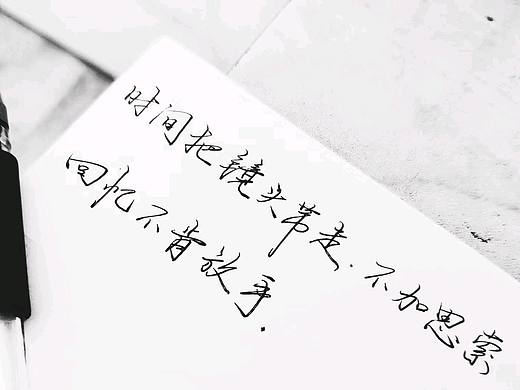 时间把镜头带走.不加思索
回忆不肯放手.